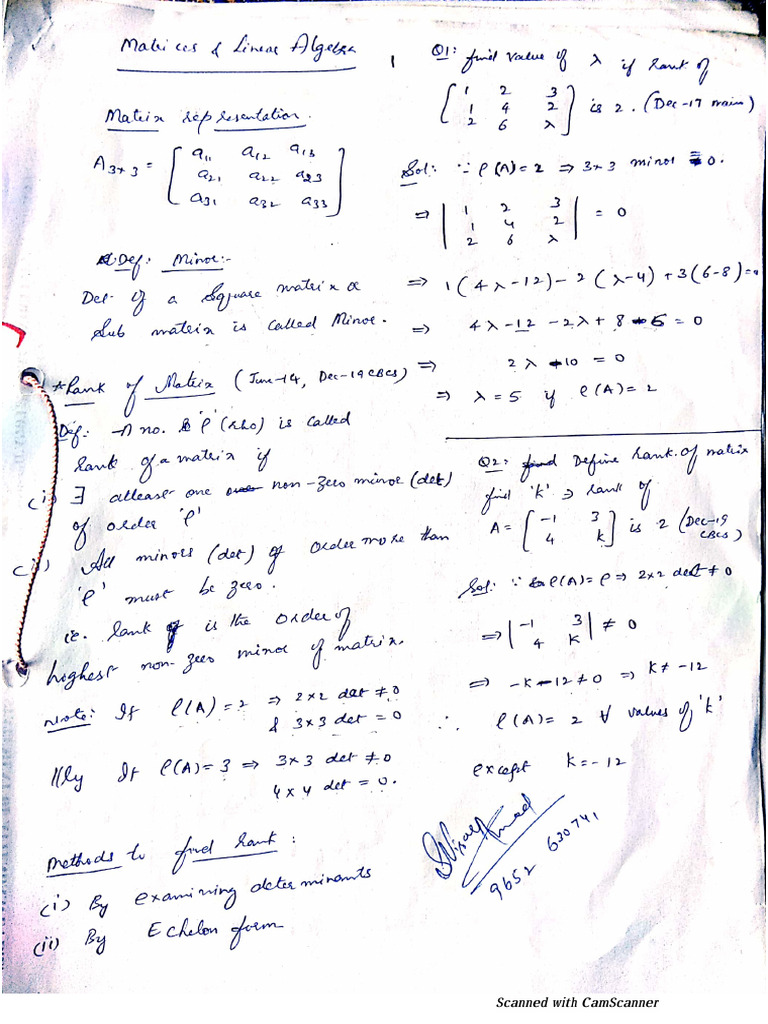 Matrices & Linear Algebra
Matrix representation.
A₃ₓ₃ = [ a₁₁ a₁₂ a₁₃
a₂₁ a₂₂ a₂₃
a₃₁ a₃₂ a₃₃ ]
Def: Minor:-
Det of a Square matrix or
Sub matrix is called Minor.
*Rank of Matrix (June-14, Dec-19 CBCS)
Def: A no. 'ρ' (rho) is called
rank of a matrix if
(i) ∃ atleast one non-zero minor (det)
of order 'ρ'
(ii) All minors (det) of order more than
'ρ' must be zero.
ie. rank is the order of
highest non-zero minor of matrix.
Note: If ρ(A) = 2 ⇒ 2x2 det ≠ 0
& 3x3 det = 0
|||ly If ρ(A) = 3 ⇒ 3x3 det ≠ 0
4x4 det = 0.
Methods to find rank :
(i) By examining determinants
(ii) By Echelon form
Q1: find value of λ if rank of
[ 1 2 3
1 4 2
2 6 λ ] is 2. (Dec-17 main)
Sol: ∵ ρ(A) = 2 ⇒ 3x3 minor = 0.
⇒ | 1 2 3
1 4 2
2 6 λ | = 0
⇒ 1(4λ-12) - 2(λ-4) + 3(6-8) = 0
⇒ 4λ - 12 - 2λ + 8 - 6 = 0
⇒ 2λ - 10 = 0
⇒ λ = 5 if ρ(A) = 2
Q2: Define rank of matrix
find 'k' ∋ rank of
A = [ -1 3
4 k ] is 2 (Dec-19 CBCS)
Sol: ∵ ρ(A) = ρ ⇒ 2x2 det ≠ 0
⇒ | -1 3
4 k | ≠ 0
⇒ -k - 12 ≠ 0 ⇒ k ≠ -12
∴ ρ(A) = 2 ∀ values of 'k'
except k = -12
9652 630741
Scanned with CamScanner